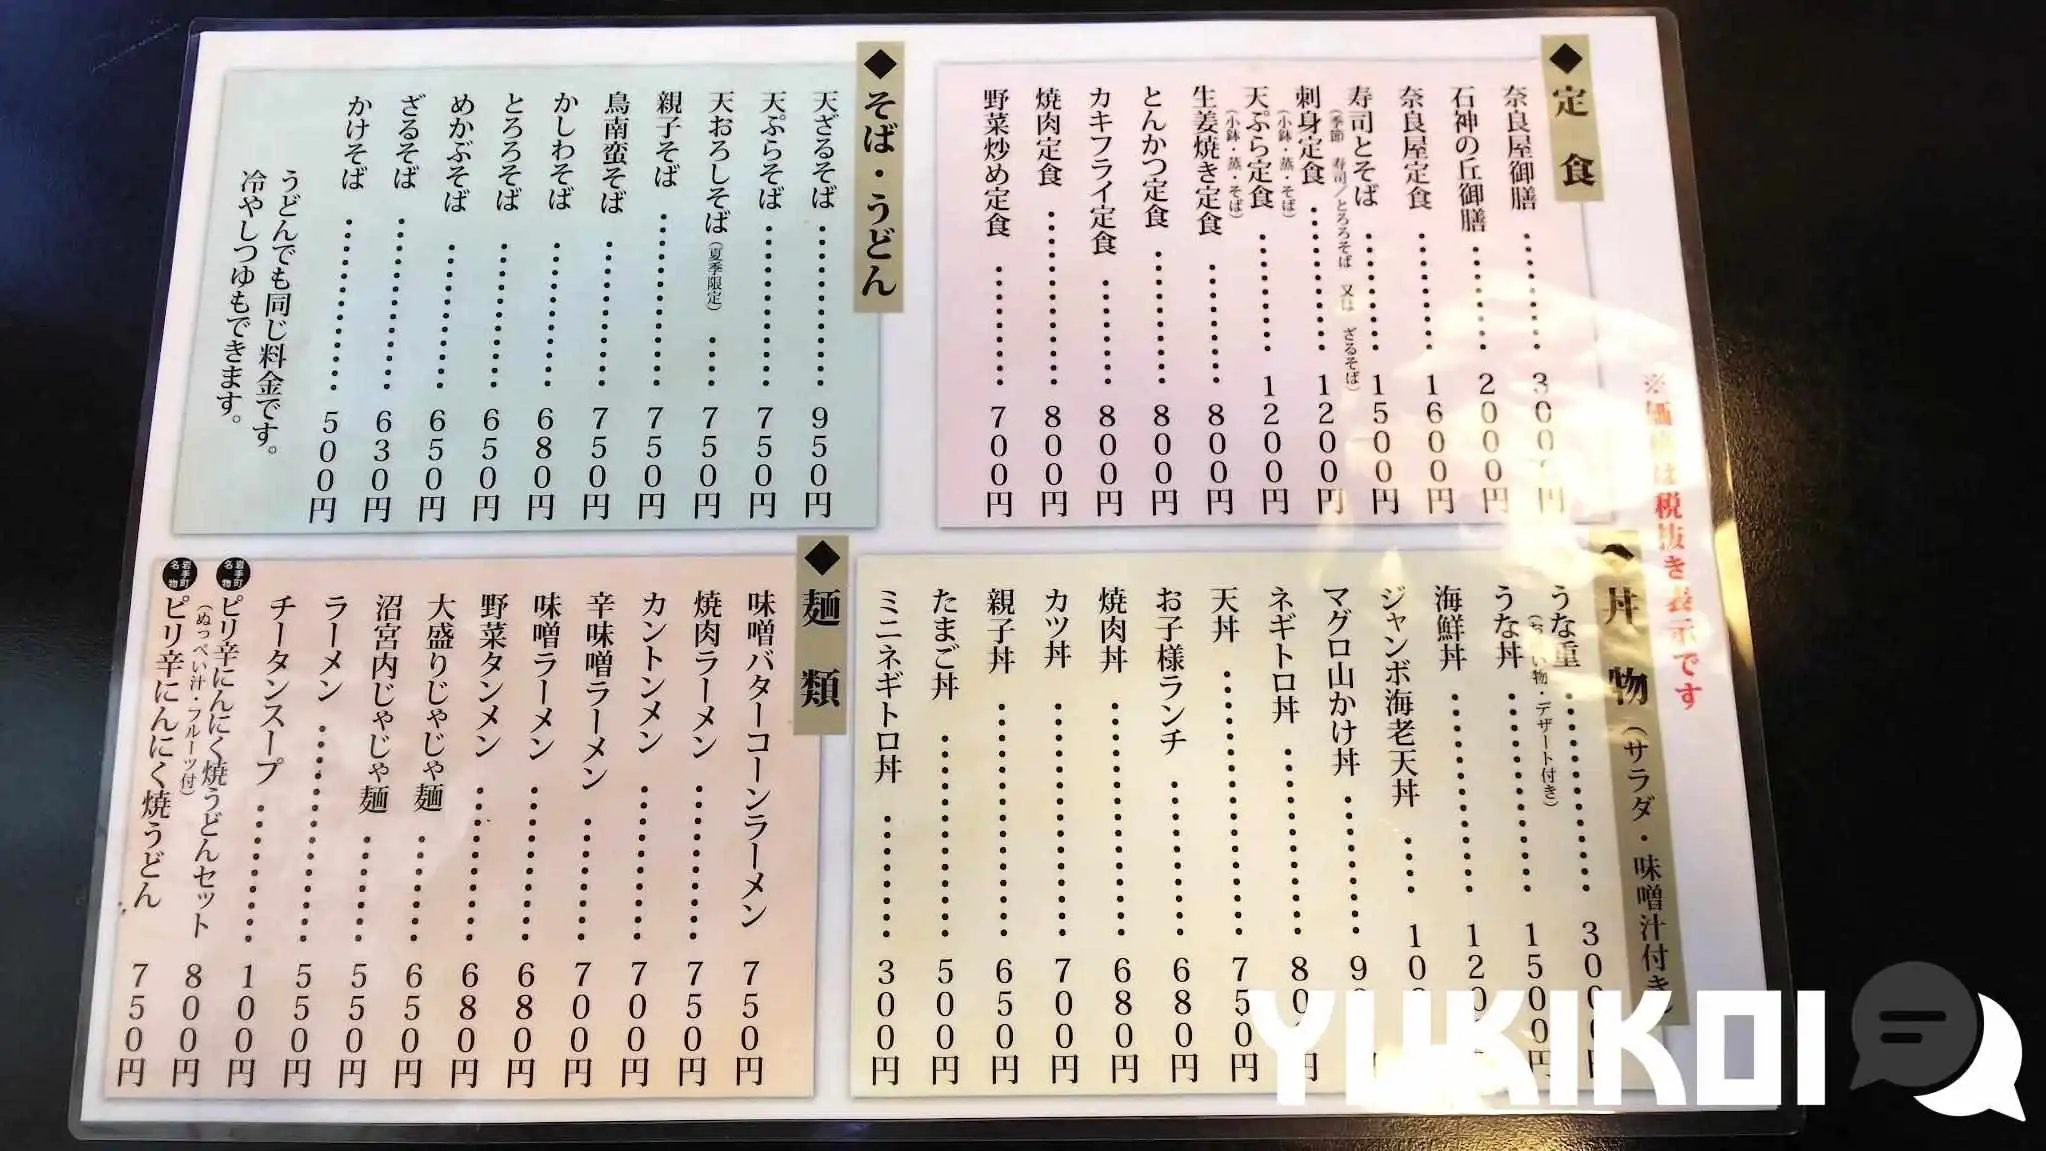 ※価格は税抜き表示です
◆定食
奈良屋御膳 3000円
石神の丘御膳 2000円
奈良屋定食 1600円
寿司とそば 1500円
(季節 寿司/とろろそば 又は ざるそば)
刺身定食 1200円
(小鉢・蒸・そば)
天ぷら定食 1200円
(小鉢・蒸・そば)
生姜焼き定食 800円
とんかつ定食 800円
カキフライ定食 800円
焼肉定食 800円
野菜炒め定食 700円
◆そば・うどん
天ざるそば 950円
天ぷらそば 750円
天おろしそば(夏季限定) 750円
親子そば 750円
鳥南蛮そば 750円
かしわそば 680円
とろろそば 650円
めかぶそば 650円
ざるそば 630円
かけそば 500円
うどんでも同じ料金です。
冷やしつゆもできます。
◆丼物(サラダ・味噌汁付き)
うな重
(お吸い物・デザート付き)
うな丼 1500円
海鮮丼
ジャンボ海老天丼
マグロ山かけ丼
ネギトロ丼
天丼 750円
お子様ランチ 680円
焼肉丼 680円
カツ丼 700円
親子丼 650円
たまご丼 500円
ミニネギトロ丼 300円
◆麺類
味噌バターコーンラーメン 750円
焼肉ラーメン 750円
カントンメン 700円
辛味噌ラーメン 700円
味噌ラーメン 680円
野菜タンメン 680円
大盛りじゃじゃ麺 650円
沼宮内じゃじゃ麺 550円
ラーメン 550円
チータンスープ 100円
岩手町名物 ピリ辛にんにく焼うどんセット 800円
(ぬっぺい汁・フルーツ付)
岩手町名物 ピリ辛にんにく焼うどん 750円
YUKIKOI